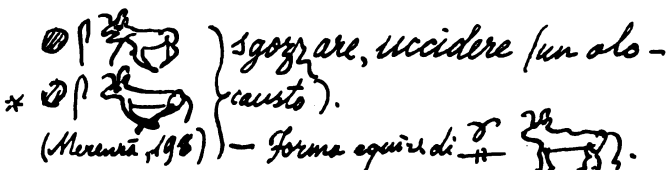 sgozzare, uccidere (un olo-
* causto).
(Merenrā, 198) — Forma equiv. di